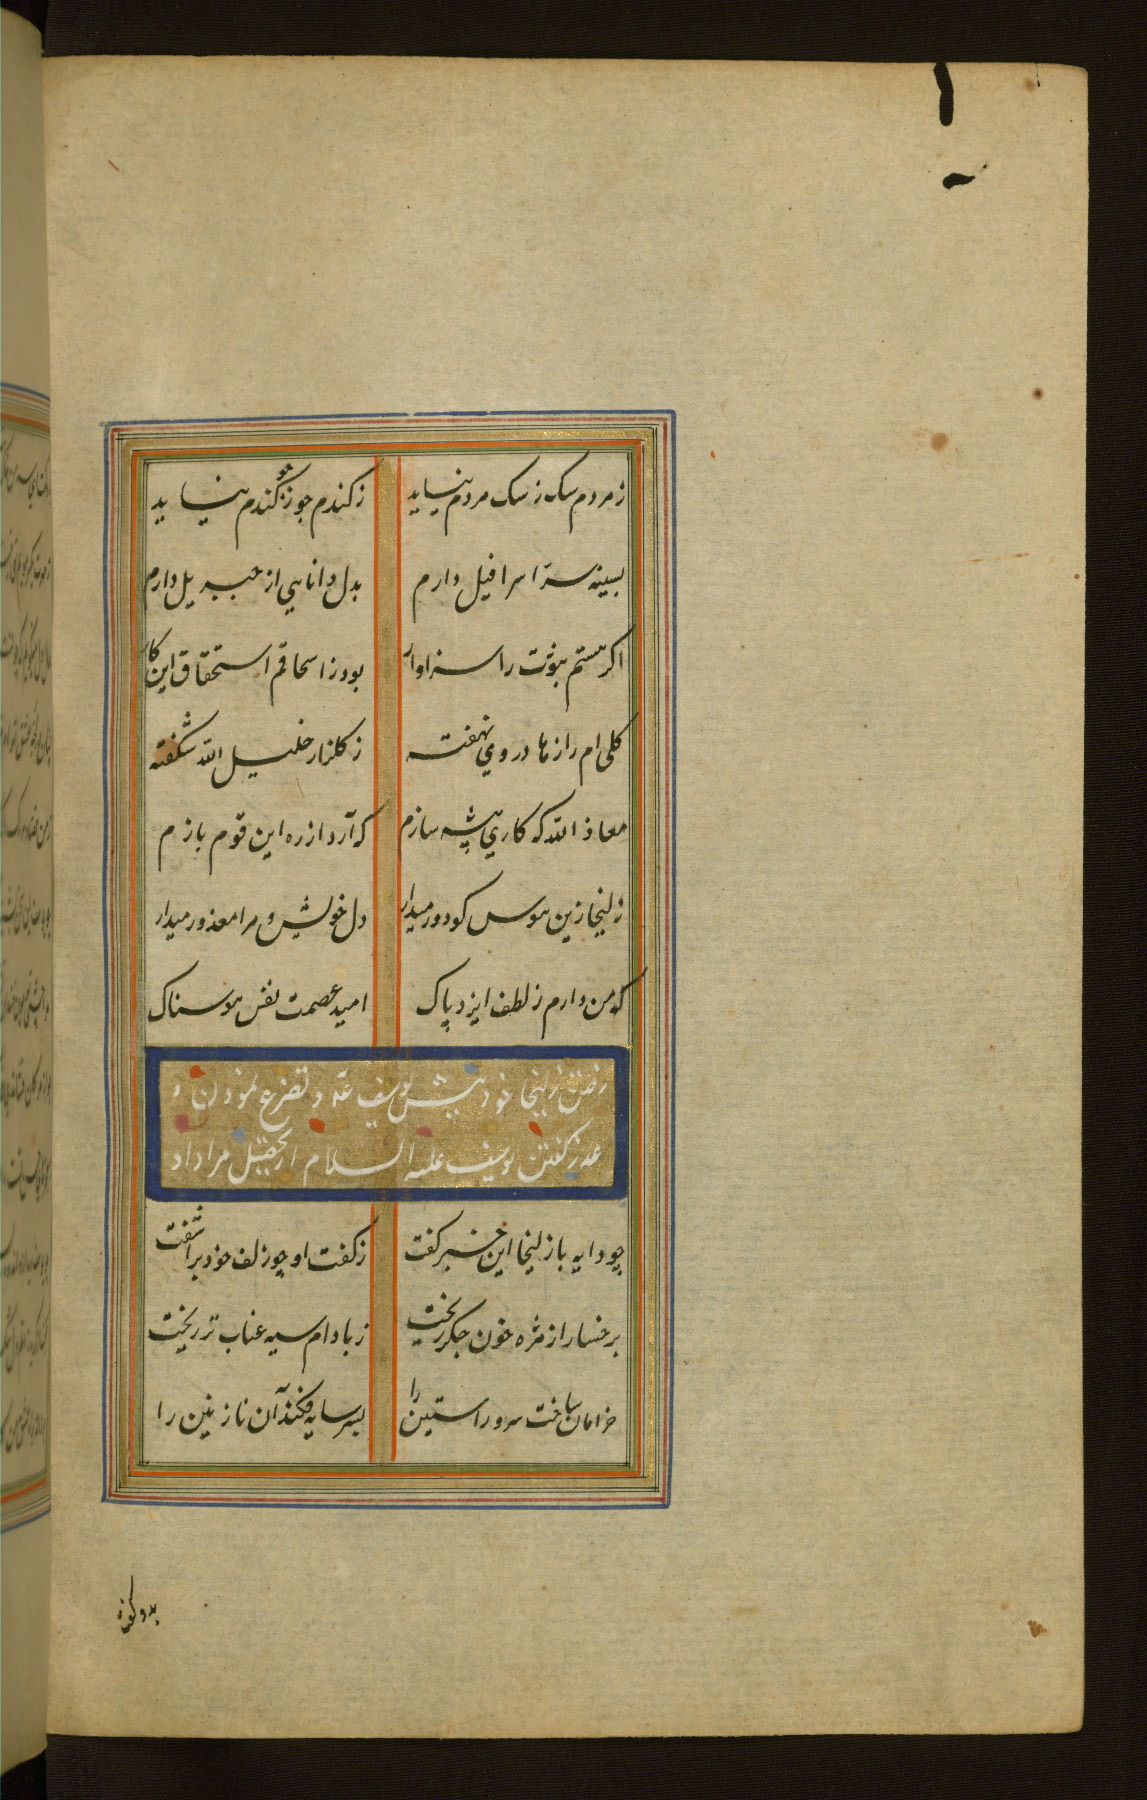 ز مردم سک ز سک مردم نیاید
ز کندم جو ز جو کندم نیاید
بسینه سرّ اسرافیل دارم
بدل دانایی از جبریل دارم
اکر هستم نبوّت را سزاوار
بود ز اسحاقم استحقاق این کار
کلی ام رازها در وی نهفته
ز کلزار خلیل الله شکفته
معاذ الله که کاری پیشه سازم
که آرد از ره این قوم بازم
زلیخا زین هوس کو دور میدار
دل خویش و مرا معذور میدار
که من دارم ز لطف ایزد پاک
امید عصمت نفس هوسناک
رفتن زلیخا خود پیش یوسف عم و تضرع نمودن و
عذر کفتن یوسف علیه السلام از تحصیل مراد او
چو دایه با زلیخا این خبر کفت
ز کفت او چو زلف خود براشفت
برخسار از مژه خون جکر ریخت
ز بادام سیه عناب تر ریخت
خرامان ساخت سرو راستین را
بسر سایه فکند آن نازنین را
بدو کفت